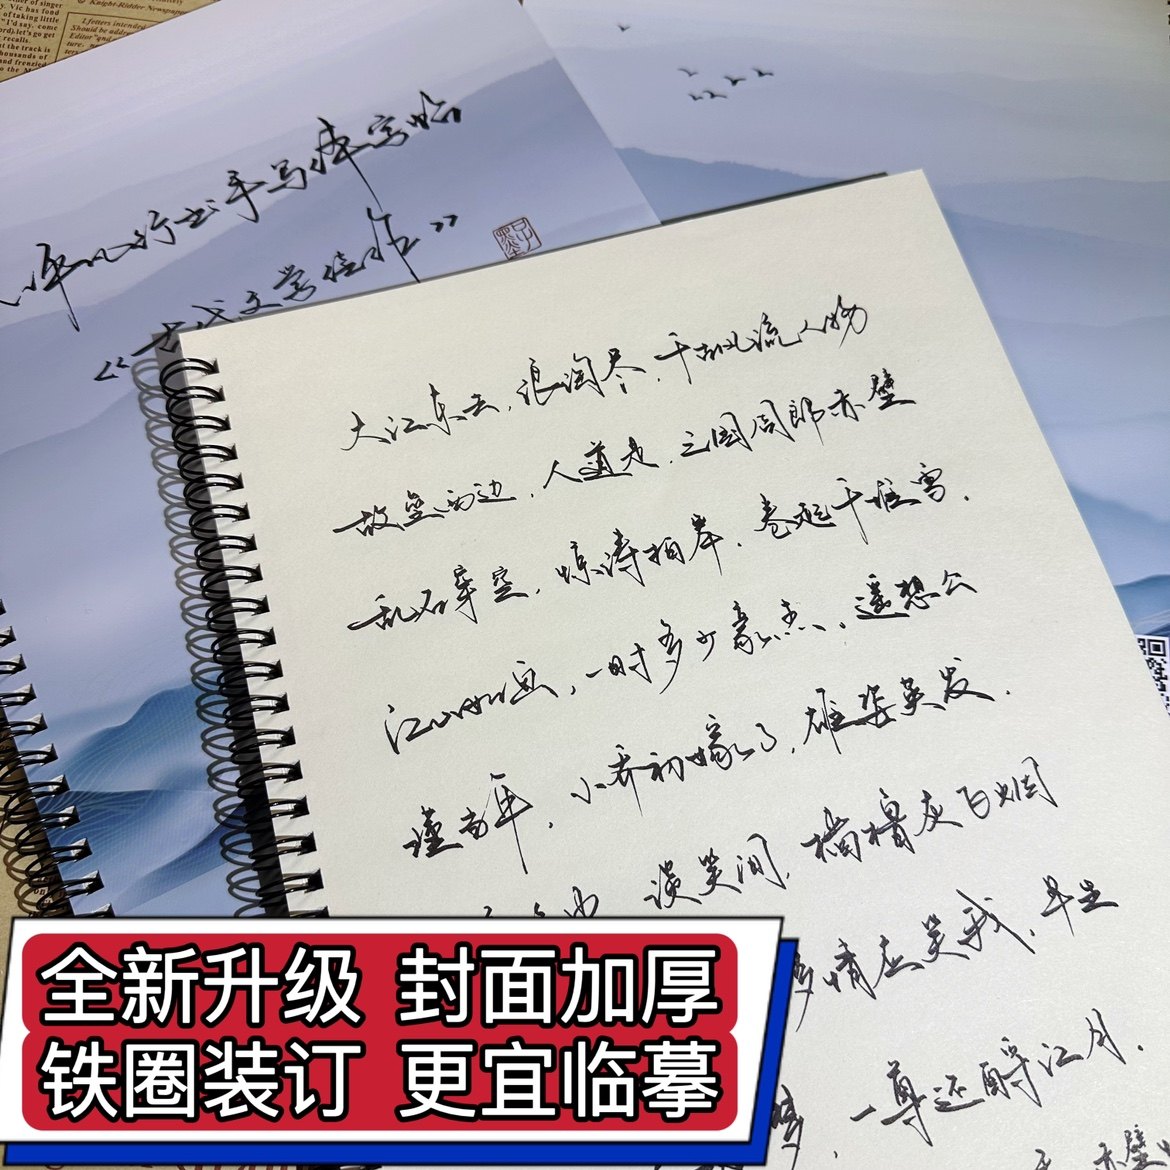 Knight-Ridder Newspaper
行书手写体字帖
《古代文学佳作》
大江东去,浪淘尽,千古风流人物
故垒西边,人道是,三国周郎赤壁
乱石穿空,惊涛拍岸,卷起千堆雪.
江山如画,一时多少豪杰,遥想公
瑾当年,小乔初嫁了,雄姿英发.
谈笑间,樯橹灰飞烟
多情应笑我,早生
一尊还酹江月.
赤壁
全新升级 封面加厚
铁圈装订 更宜临摹